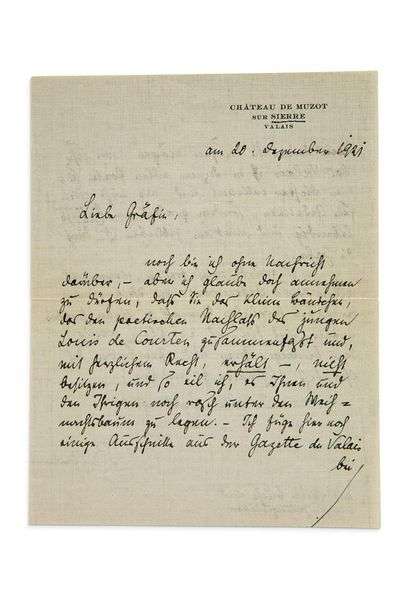 CHÂTEAU DE MUZOT
SUR SIERRE
VALAIS
am 20. Dezember 1921
Liebe Gräfin,
noch bin ich ohne Nachricht
darüber, – aber ich glaube doch annehmen
zu dürfen, daß Sie das kleine Bändchen,
das den poetischen Nachlaß des jungen
Louis de Courten zusammenfaßt und,
mit herzlichem Recht, erhält –, nicht
besitzen, und so eil ich, es Ihnen und
den Ihrigen noch rasch unter den Weih=
nachtsbaum zu legen. – Ich füge hier noch
einige Ausschnitte aus der Gazette du Valais
bei